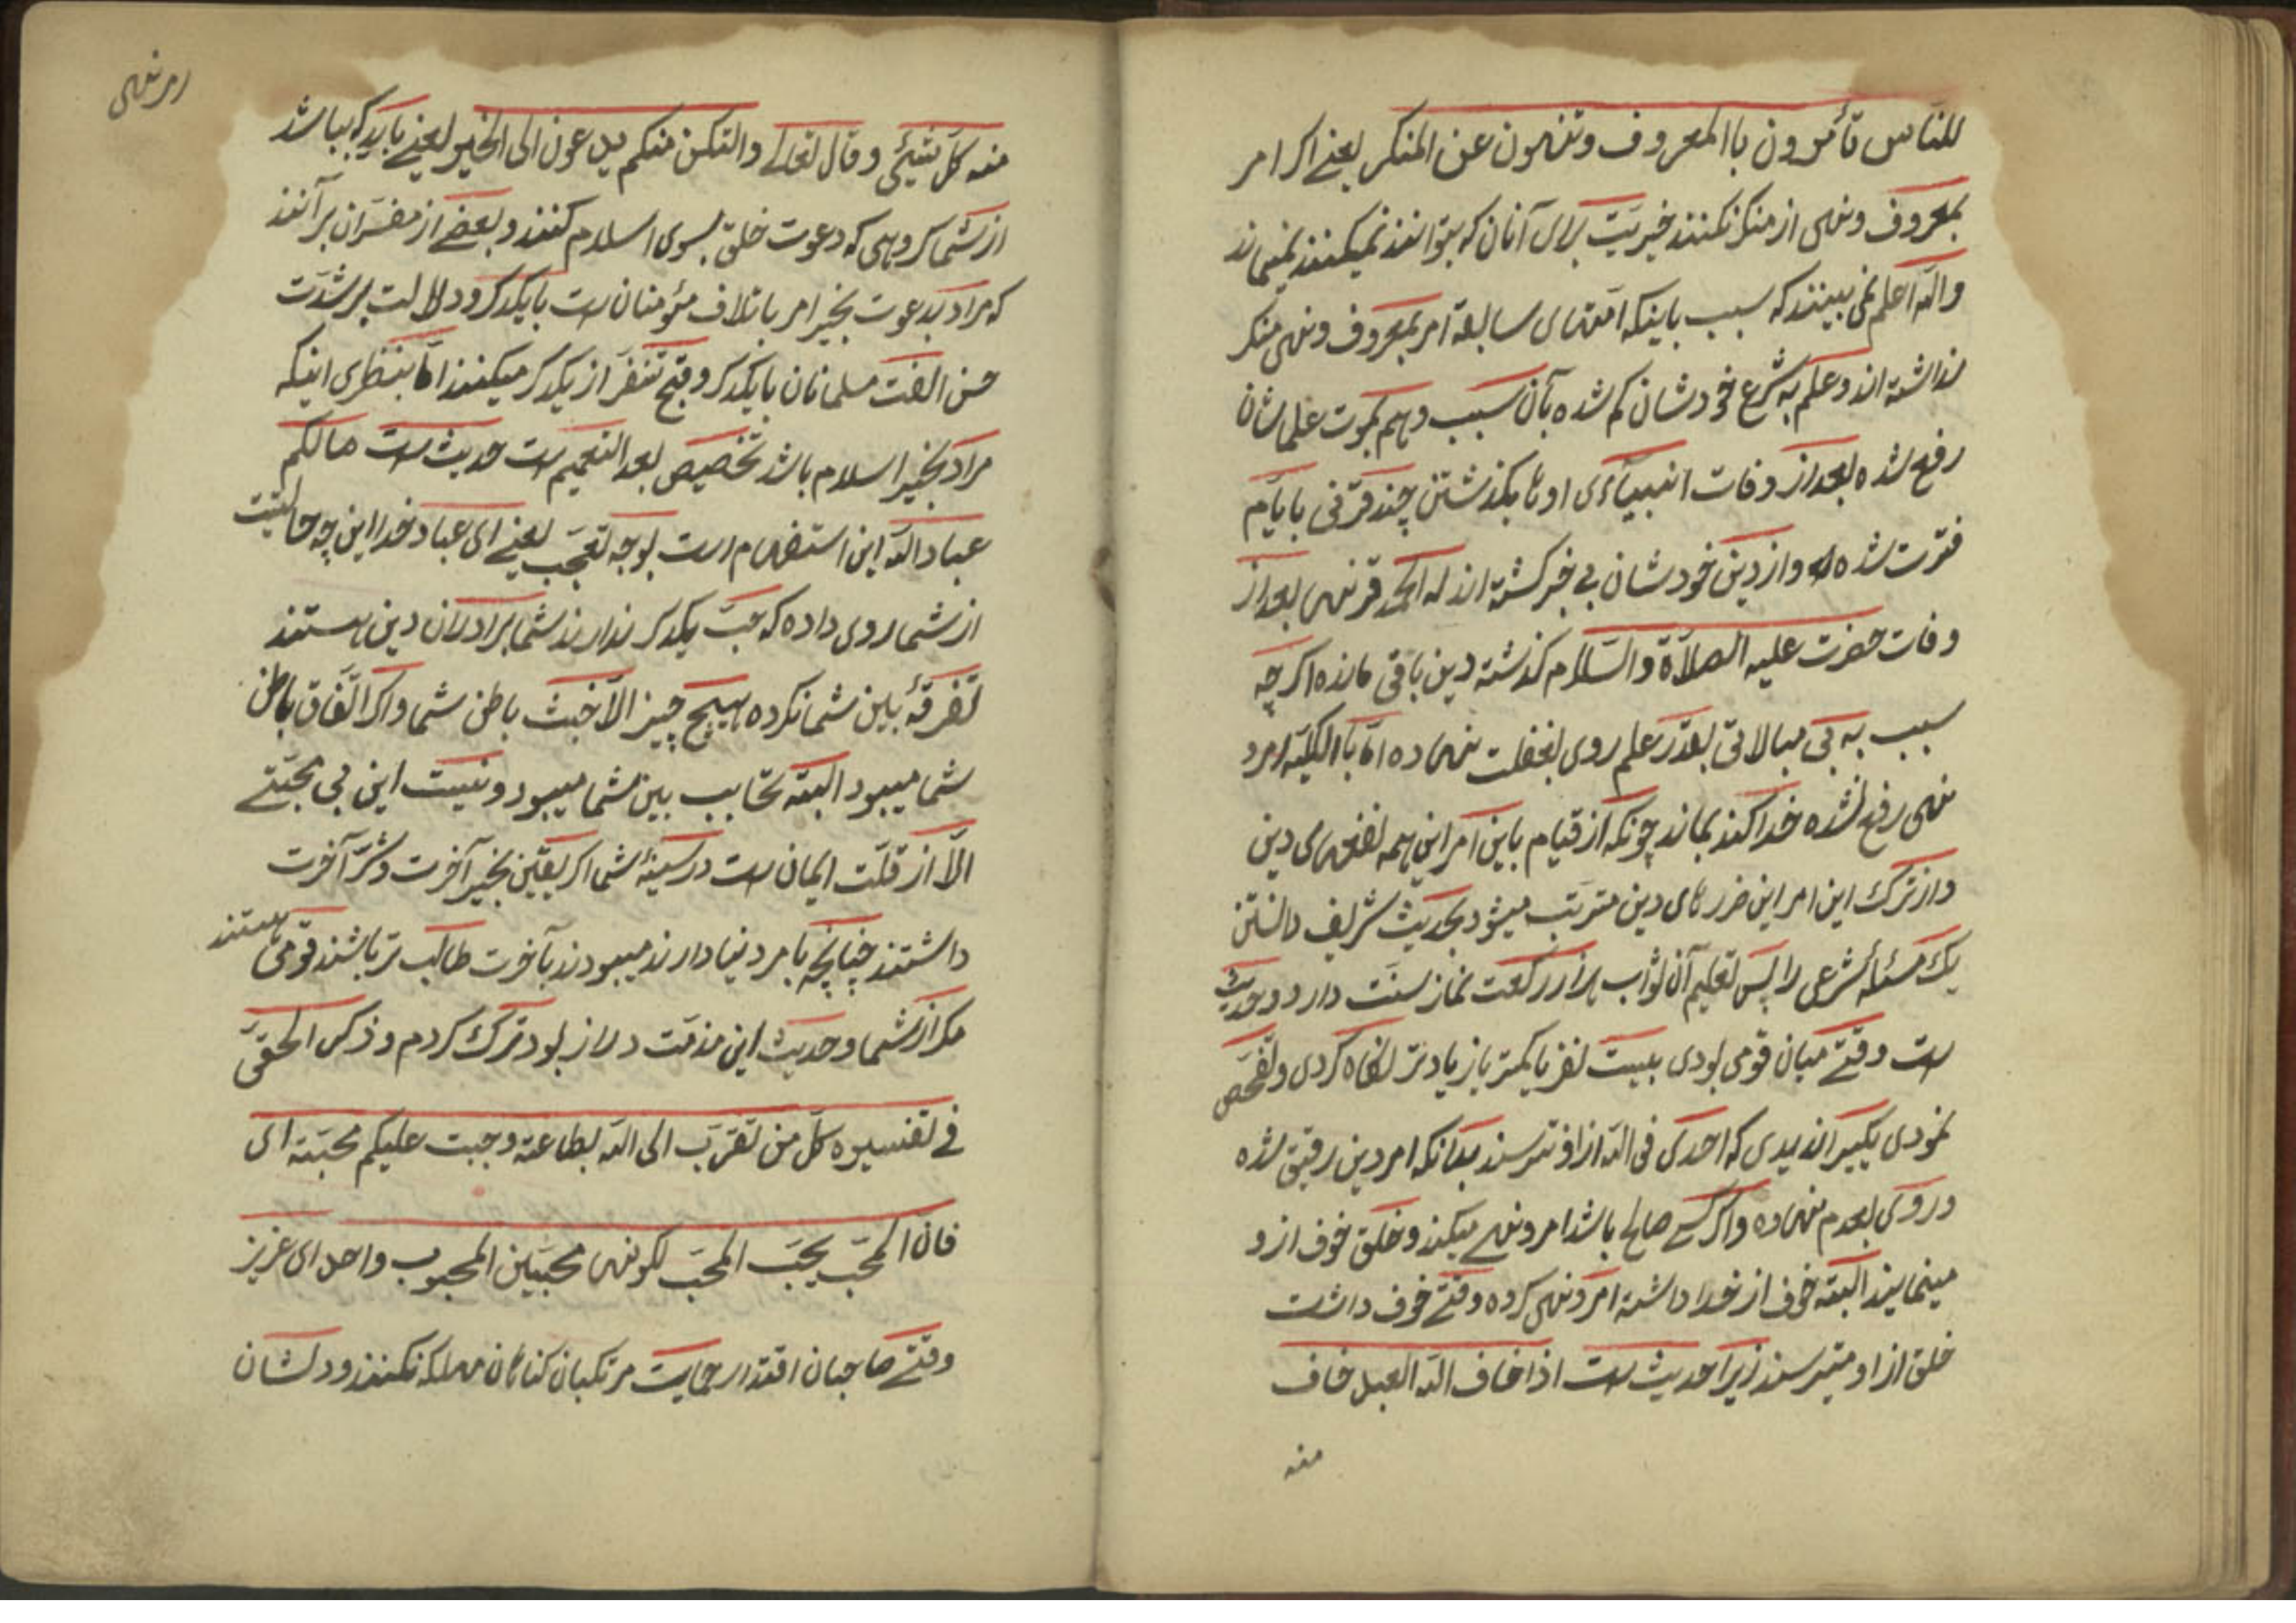 للنّاس تأمرون باالمعروف وتنهون عن المنکر یعنے اکر امر
بمعروف ونهی از منکر نکنند خیریّت برای آنان که بتوانند نمیکنند نمیماند
واللّه اعلم نمی بینند که سبب باینکه امّتهای سابقه امر بمعروف ونهی منکر
نداشته اند وعلم به شرع خودشان کم شده بآن سبب وهم بموت علماشان
رفع شده بعد از وفات انبیاءی اوها بکذشتن چند قرنی بایّام
فترت شده وازدین خودشان بی خبر کشته اند له الحمد قرنهی بعد از
وفات حضرت علیه الصلاة والسّلام کذشته دین باقی مانده اکرچه
سبب به بی مبالاتی بقدر علم روی بغفلت نهاده امّا باالکلّیه امر و
نهی رفع نشده خدا کند بماند چونکه از قیام باین امر این همه نفعهای دین
واز ترک این امر این ضررهای دین مترتّب میشود بحدیث شریف دانستن
یک مسئلۀ شرعی را پس تعلیم آن ثواب هزار رکعت نماز سنّت دارد وحدیث
است وقتے میان قومی بودی بیست نفر یا کمتر یا زیادتر نکاه کردی وتفحّص
نمودی یکیرا ندیدی که احدی فی اللّه از او نترسند بدانکه امر دین رقیق شده
وروی بعدم نهاده واکر کسے صالح باشد امر ونهے میکند وخلق خوف از و
مینمایند البتّه خوف از خدا داشته امر ونهی کرده وقتے خوف داشت
خلق از او میترسند زیرا حدیث است اذا خاف اللّه العبد خاف
منه
امر نهی
منه کلّ شیئی وقال تعالے والتکن منکم یدعون الی الخیر یعنے باید که بباشد
از شما کروهی که دعوت خلق بسوی اسلام کنند وبعضے از مفسّران برآنند
که مراد بدعوت بخیر امر باتلاف مؤمنان است بایکدکر ودلالت بر شدّت
حسن الفت مسلمانان بایکدکر وقبح تنفّر از یکدکر میکنند امّا بنظری اینکه
مراد بخیر اسلام باشد تخصیص بعد التعمیم است حدیث است مالکم
عباد اللّه این استفهام است بوجه تعجّب یعنے ای عباد خدا این چه حالتیت
از شما روی داده که حبّ یکدکر ندارند شما برادران دین هستند
تفرقۀ بین شما نکرده هیچ چیز الّا خبث باطن شما واکر اتّفاق باطن
شما میبود البتّه تحابب بین شما میبود ونیست این بی محبّتے
الّا از قلّت ایمان است در سینۀ شما اکر یقین بخیر آخرت وشرّ آخرت
داشتند چنانچه بامر دنیا دارند میبودند بآخرت طالب تر باشند قومی هستند
مکر از شما وحدیث این مذمّت دراز بود ترک کردم وذکر الحقّی
فے تفسیره کلّ من تقرّب الی اللّه بطاعته وجبت علیکم محبّته ای
فانّ المحبّ یحبّ المحبّ لکونهما محبّین المحبوب واحد ای عزیز
وقتے صاحبان اقتدار حمایت مرتکبان کناهان مهلکه نکنند ودلشان